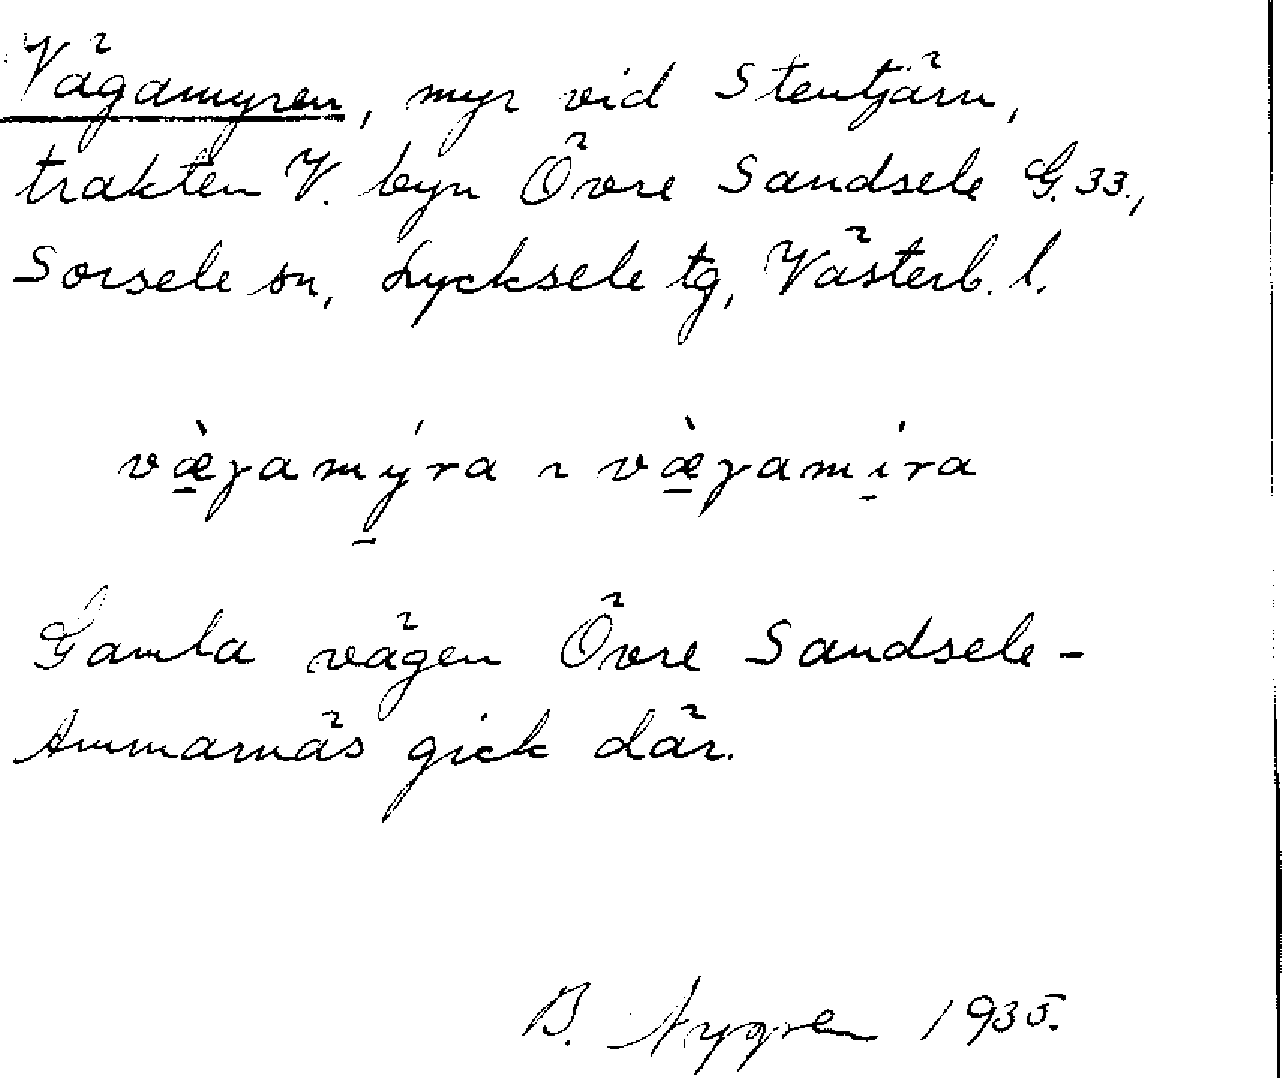 Vägamyren, myr vid Stentjärn,
trakten V. byn Övre Sandsele G.33.,
Sorsele sn, Lycksele tg, Västerb. l.
væ̀gamýra ~ væ̀gamira
Gamla vägen Övre Sandsele-
Ammarnäs gick där.
B. Nygren 1935.